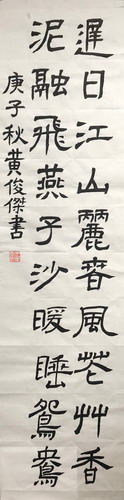 遲日江山麗春風花艸香
泥融飛燕子沙暖睡鴛鴦
庚子秋黄俊傑書